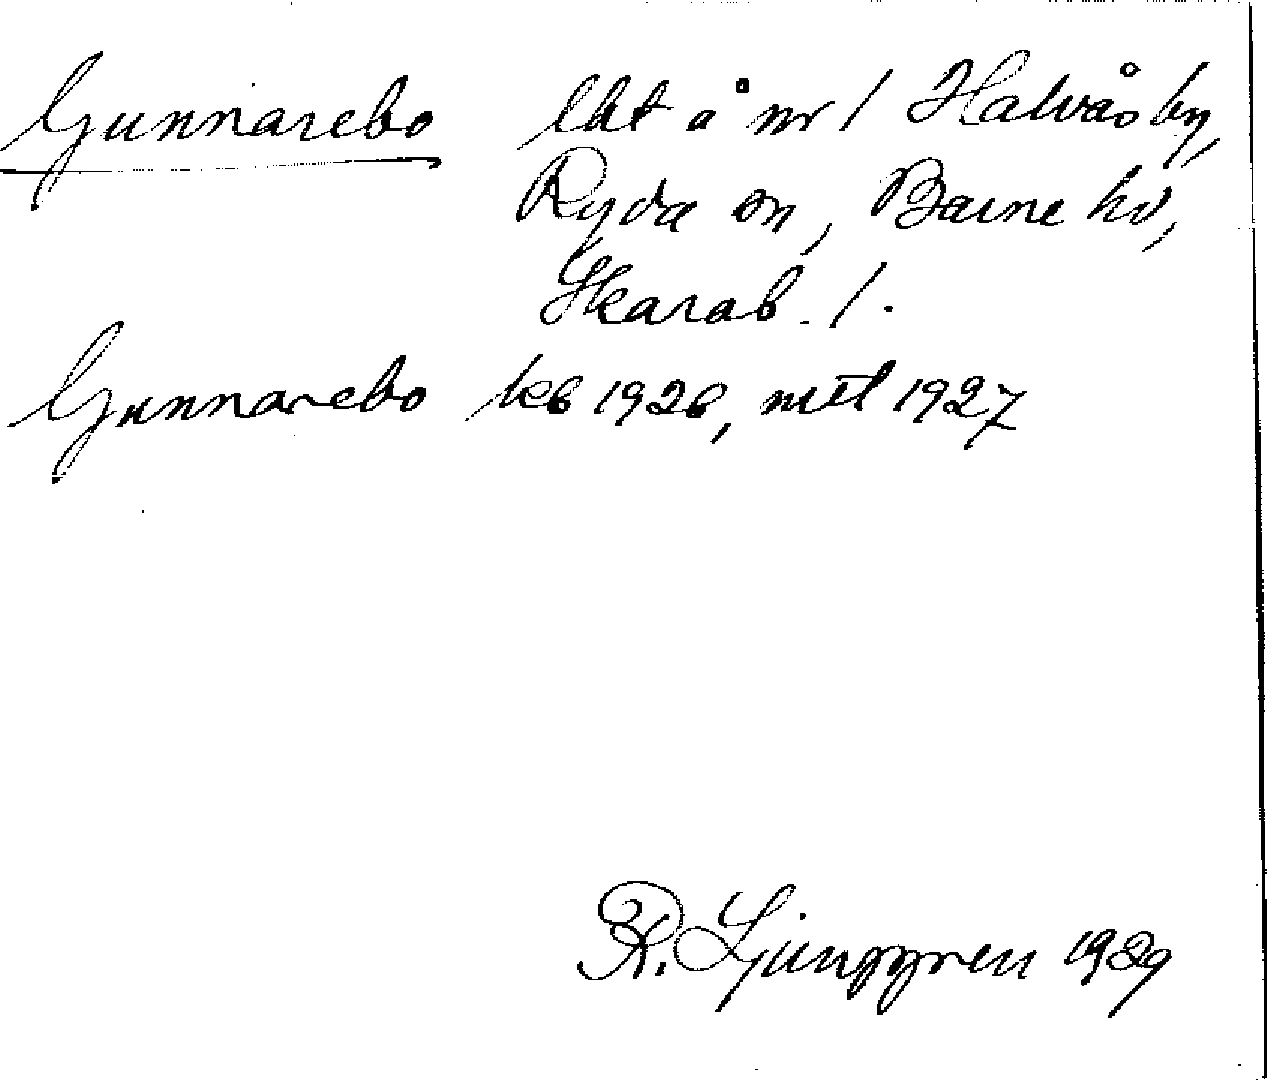 Gunnarebo lht å nr 1 Halvås by,
Ryda sn, Barne hd,
Skarab. l.
Gunnarebo kb 1926, mtl 1927
R. Ljunggren 1929